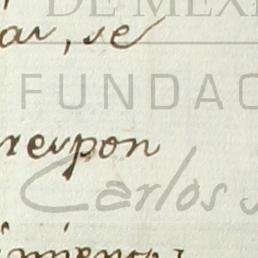 DE MEX
ar, se
FUNDAC
respon
Carlos S
imienos